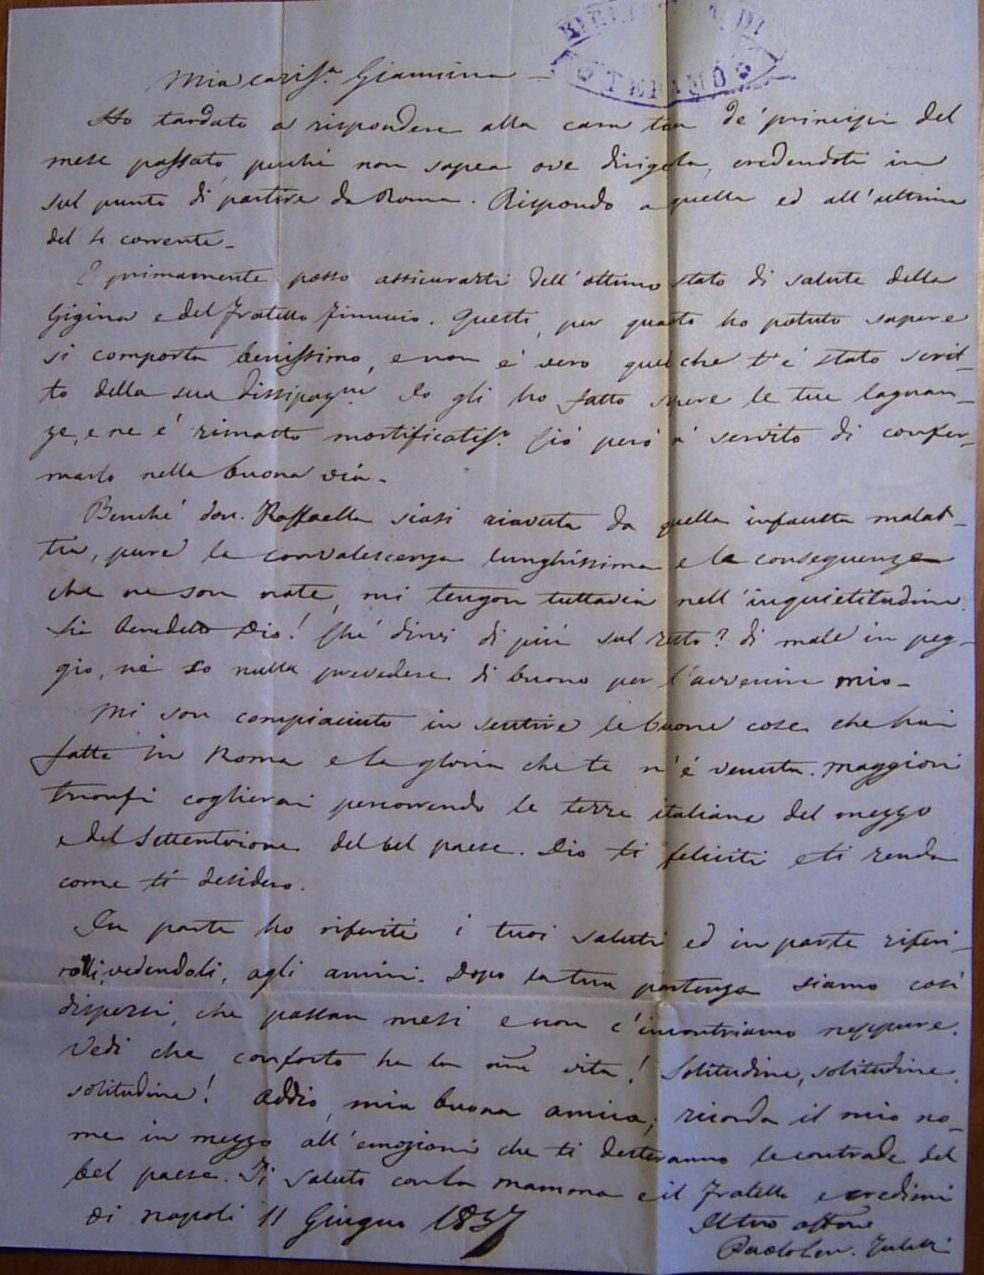 BIBLIOTECA DI
TERAMO
Mia cariss.ª Giannina —
Ho tardato a rispondere alla cara tua de' principii del
mese passato, perchè non sapea ove dirigerla, credendoti in
sul punto di partire da Roma. Rispondo a quella ed all'ultima
del corrente.
E primamente posso assicurarti dell'ottimo stato di salute della
Gigina e del fratello. Questi, per quanto ho potuto sapere
si comporta benissimo, e non è vero quel che t'è stato scrit-
to della sua dissipaz.ne Io gli ho fatto sapere le tue lagnan-
ze, e ne è rimasto mortificatiss.º Ciò però è servito di confer-
marlo nella buona via.
Benchè Raffaella siasi riavuta da quella infausta malat-
tia, pure la convalescenza lunghissima e le conseguenze
che ne son nate, mi tengon tuttavia nell'inquietitudine.
Sia benedetto Dio! Che dirvi di più sul resto? di male in peg-
gio, nè so nulla prevedere di buono per l'avvenire mio.
Mi son compiaciuto in sentire le buone cose che hai
fatte in Roma e la gloria che te n'è venuta. Maggiori
trionfi coglierai percorrendo le terre italiane del mezzo
e del Settentrione del bel paese. Dio ti feliciti e ti renda
come ti desidero.
In parte ho riferiti i tuoi saluti ed in parte riferi-
rolli, vedendoli, agli amici. Dopo la tua partenza siamo così
dispersi, che passan mesi e non c'incontriamo neppure.
Vedi che conforto ha la mia vita! Solitudine, solitudine,
solitudine! Addio, mia buona amica; ricorda il mio no-
me in mezzo all'emozioni che ti desteranno le contrade del
bel paese. Ti saluto con la mamma e il fratello e credimi
Di Napoli 11 Giugno 1857
Il tuo aff.mo